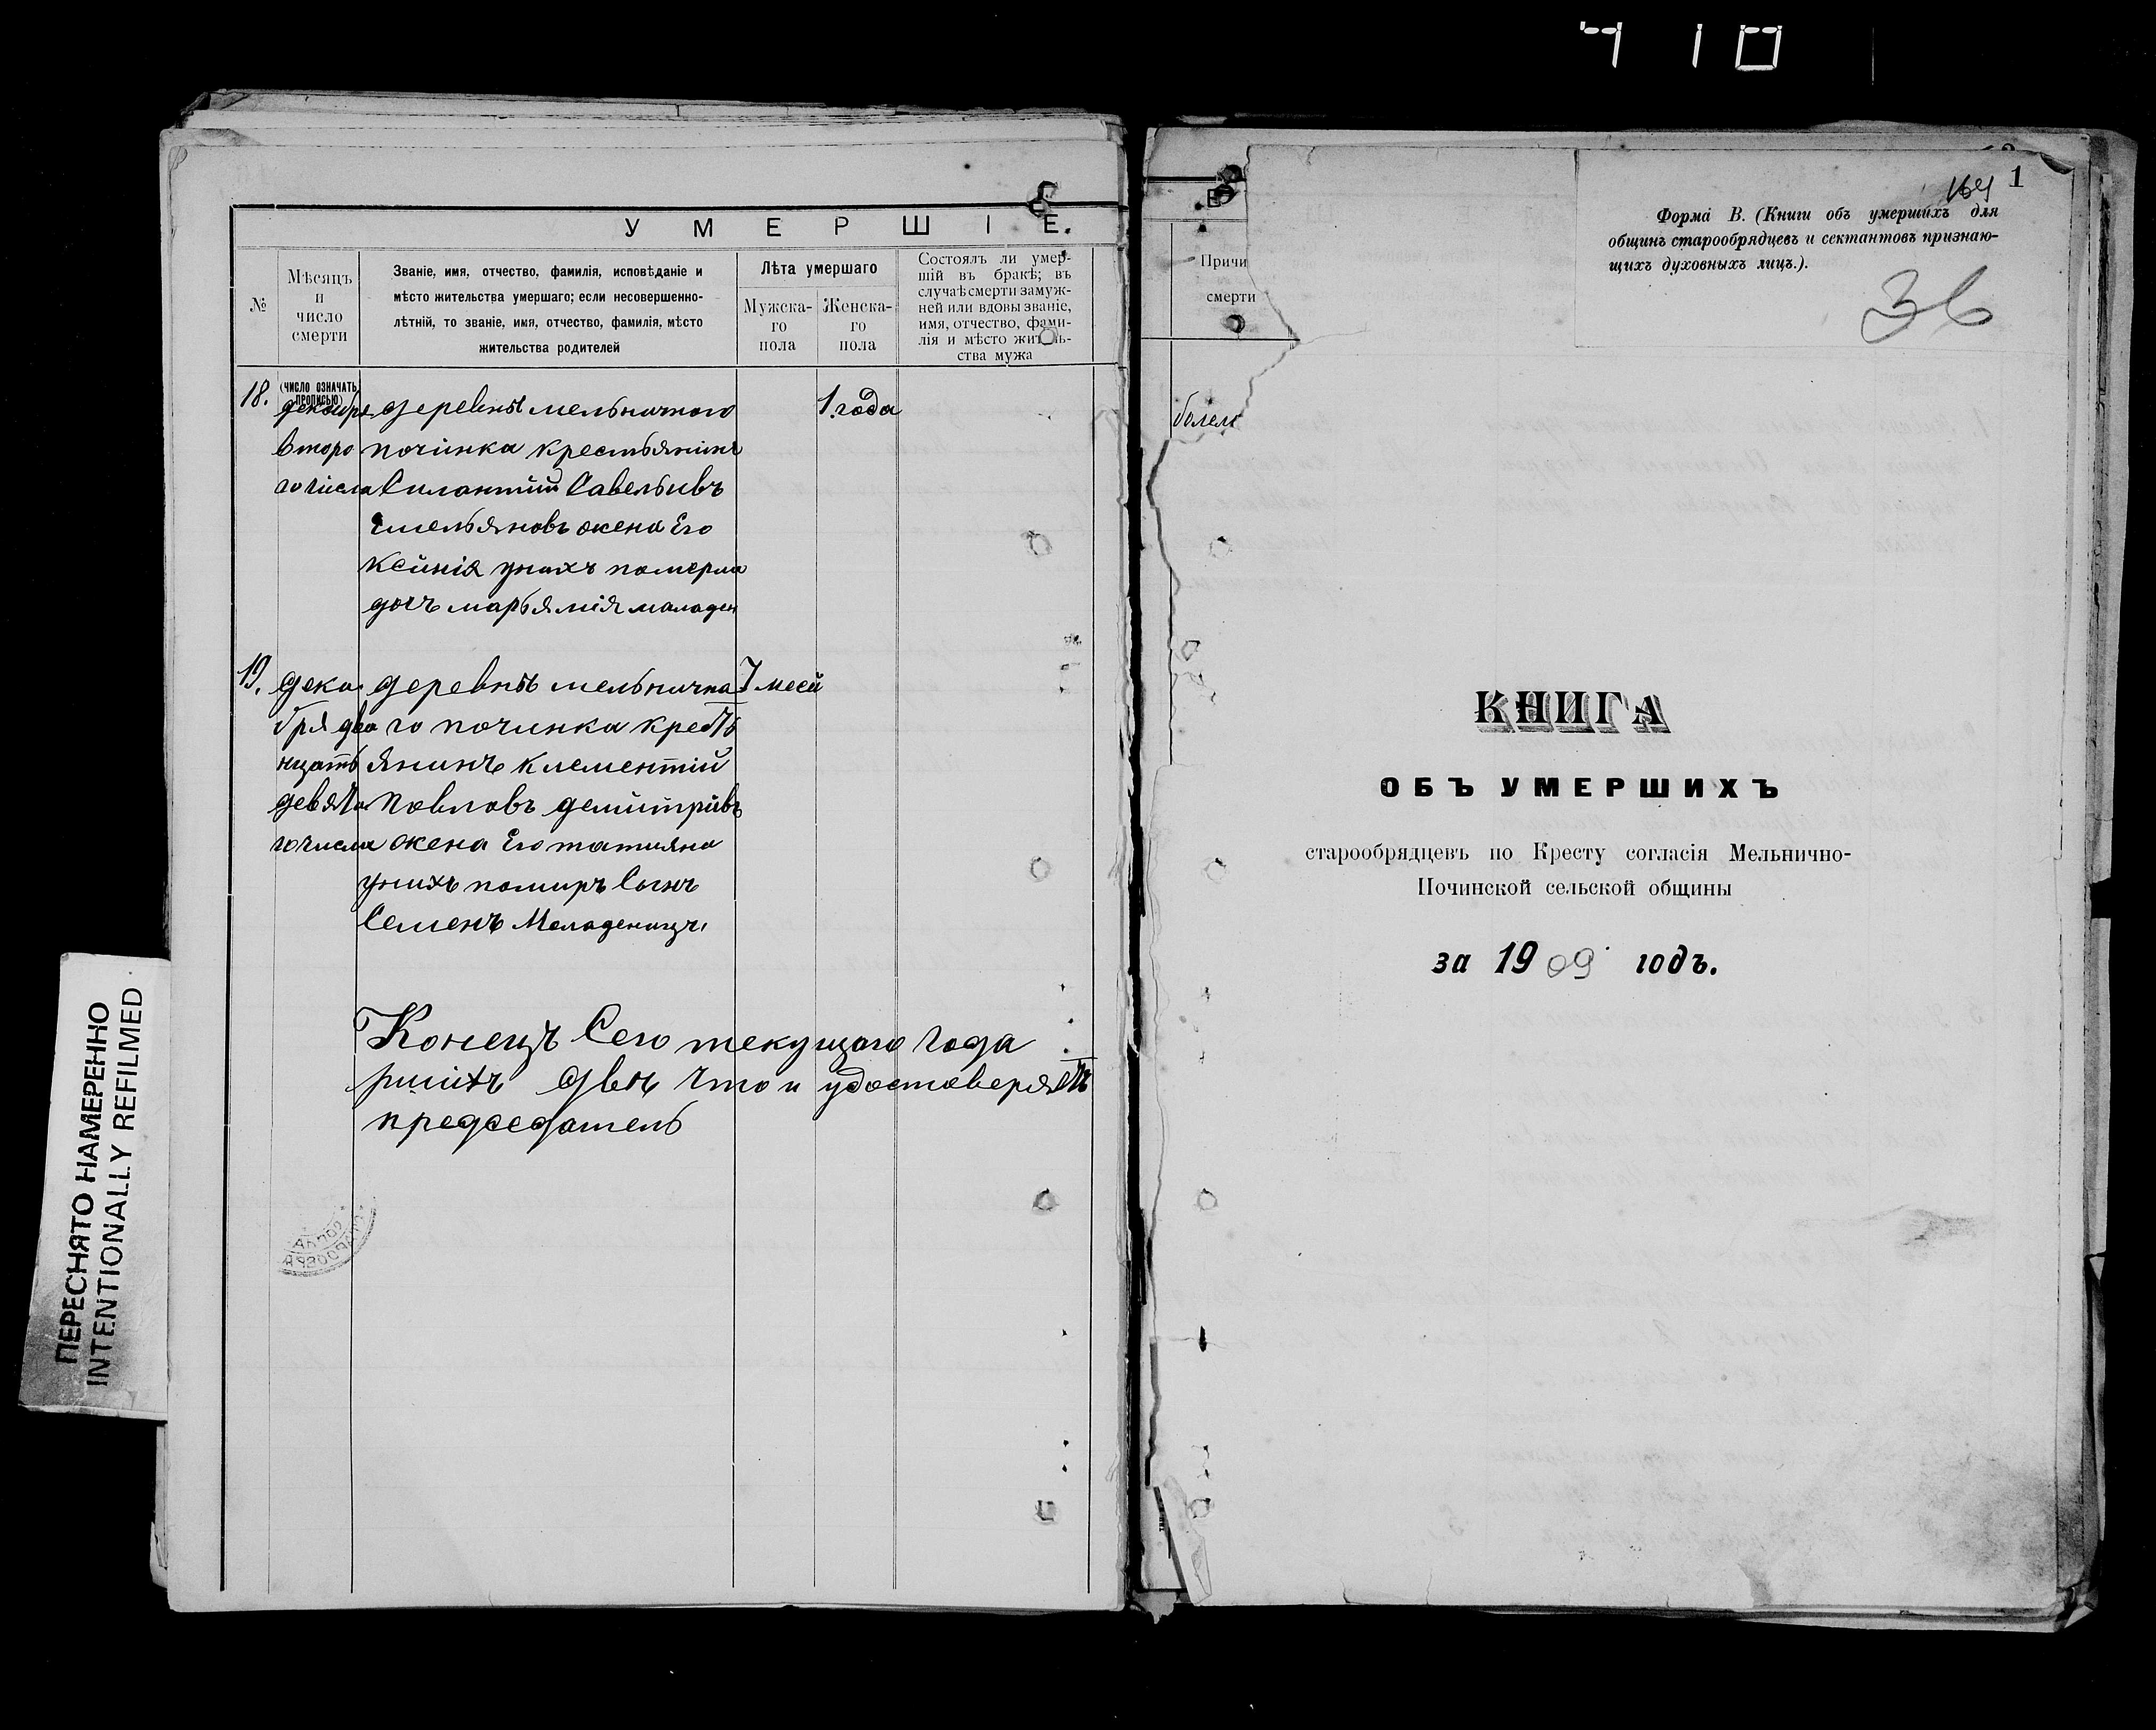 У М Е Р Ш І Е.
№
Мѣсяцъ
и
число
смерти
Званіе, имя, отчество, фамилія, исповѣданіе и
мѣсто жительства умершаго; если несовершенно-
лѣтній, то званіе, имя, отчество, фамилія, мѣсто
жительства родителей
Лѣта умершаго
Мужска-
го
пола
Женска-
го
пола
Состоялъ ли умер-
шій въ бракѣ; въ
случаѣ смерти замуж-
ней или вдовы званіе,
имя, отчество, фами-
лія и мѣсто житель-
ства мужа
(число означать
прописью)
18.
второ
го числа
деревны мельничного
починка крестьянинъ
Силантий Савельивъ
Емельяновъ жена Его
Ксиния унихъ померла
дочъ марьямія маладен
1. года
19.
дека
бря два
нцать
девята
го числа
деревны мельнична
го починка кресть
янинъ клементий
Повловъ демитривъ
жена Его татияна
унихъ помиръ Сынъ
Семенъ Меладенецъ.
7 меси
Конецъ Сего текущаго года
что и удостоверяетъ
председатель
Е
Причи
смерти
болел
ПЕРЕСНЯТО НАМЕРЕННО
INTENTIONALLY REFILMED
1
164
Форма В. (Книги объ умершихъ для
общинъ старообрядцевъ и сектантовъ признаю-
щихъ духовныхъ лицъ.).
КНИГА
ОБЪ УМЕРШИХЪ
старообрядцевъ по Кресту согласія Мельнично-
Починской сельской общины
за 1909 годъ.